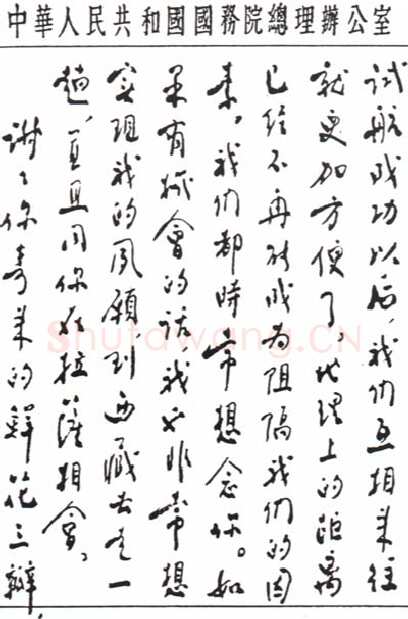 中華人民共和國國務院總理辦公室
试航成功以后，我们互相来往
就更加方便了，地理上的距离
已经不再能成为阻隔我们的因
素。我们都時常想念你。如
果有机會的话，我也非常想
实现我的夙願到西藏去走一
趟，并且同你在拉薩相會。
谢々你寄来的鲜花三瓣，
Shufawang.CN